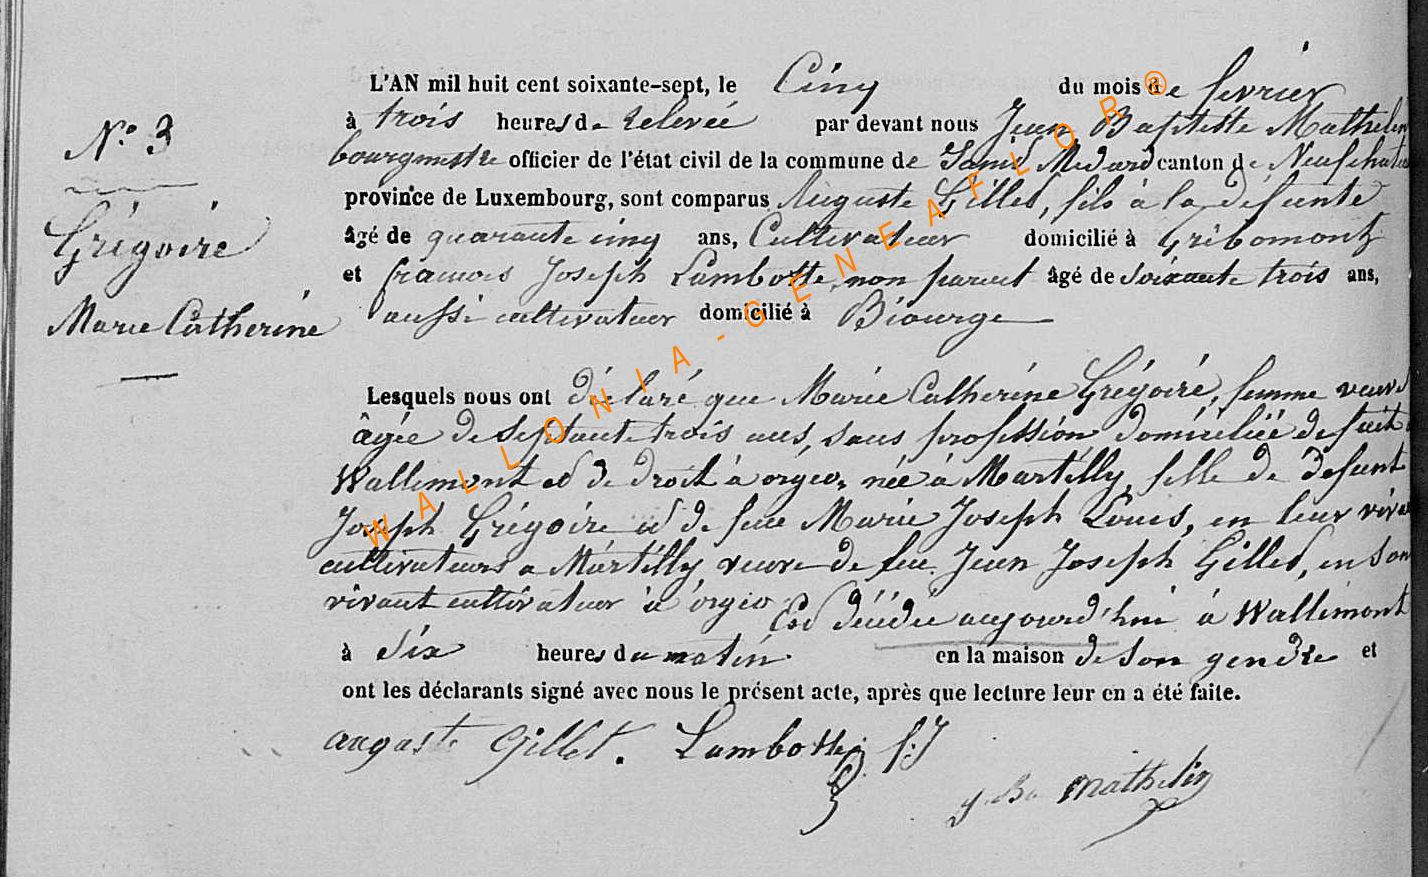 L'AN mil huit cent soixante-sept, le Cinq du mois de fevrier
N.º 3
à trois heures de relevée par devant nous Jean Baptiste Mathelin
bourgmestre officier de l'état civil de la commune de Saint Médard canton de Neufchateau
province de Luxembourg, sont comparus Auguste Gillet, fils à la défunte
Grégoire
âgé de quarante cinq ans, Cultivateur domicilié à Gribomont
et francois Joseph Lambotte, non parent âgé de Soixante trois ans,
Marie Catherine
aussi cultivateur domicilié à Biourge
Lesquels nous ont déclaré que Marie Catherine Grégoire, femme veuve
âgée de Septante trois ans, sans profession domiciliée de fait à
Wallimont et de droit à orgeo, née à Martilly, fille de défunt
Joseph Grégoire et de feue Marie Joseph Louis, en leur vivant
cultivateurs a Martilly, veuve de feu Jean Joseph Gillet, en son
vivant cultivateur à orgeo Est décédée aujourd'hui à Wallimont
à Six heures du matin en la maison de Son gendre et
ont les déclarants signé avec nous le présent acte, après que lecture leur en a été faite.
auguste Gillet. Lambotte f:J
J. Bte Mathelin
WALLONIA-GENEAFLOR®